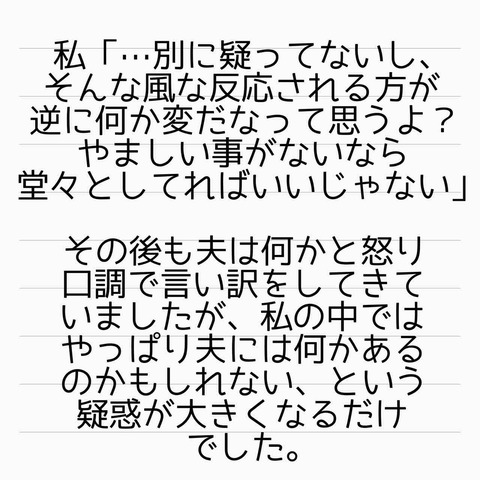 私「…別に疑ってないし、
そんな風な反応される方が
逆に何か変だなって思うよ？
やましい事がないなら
堂々としてればいいじゃない」
その後も夫は何かと怒り
口調で言い訳をしてきて
いましたが、私の中では
やっぱり夫には何かある
のかもしれない、という
疑惑が大きくなるだけ
でした。